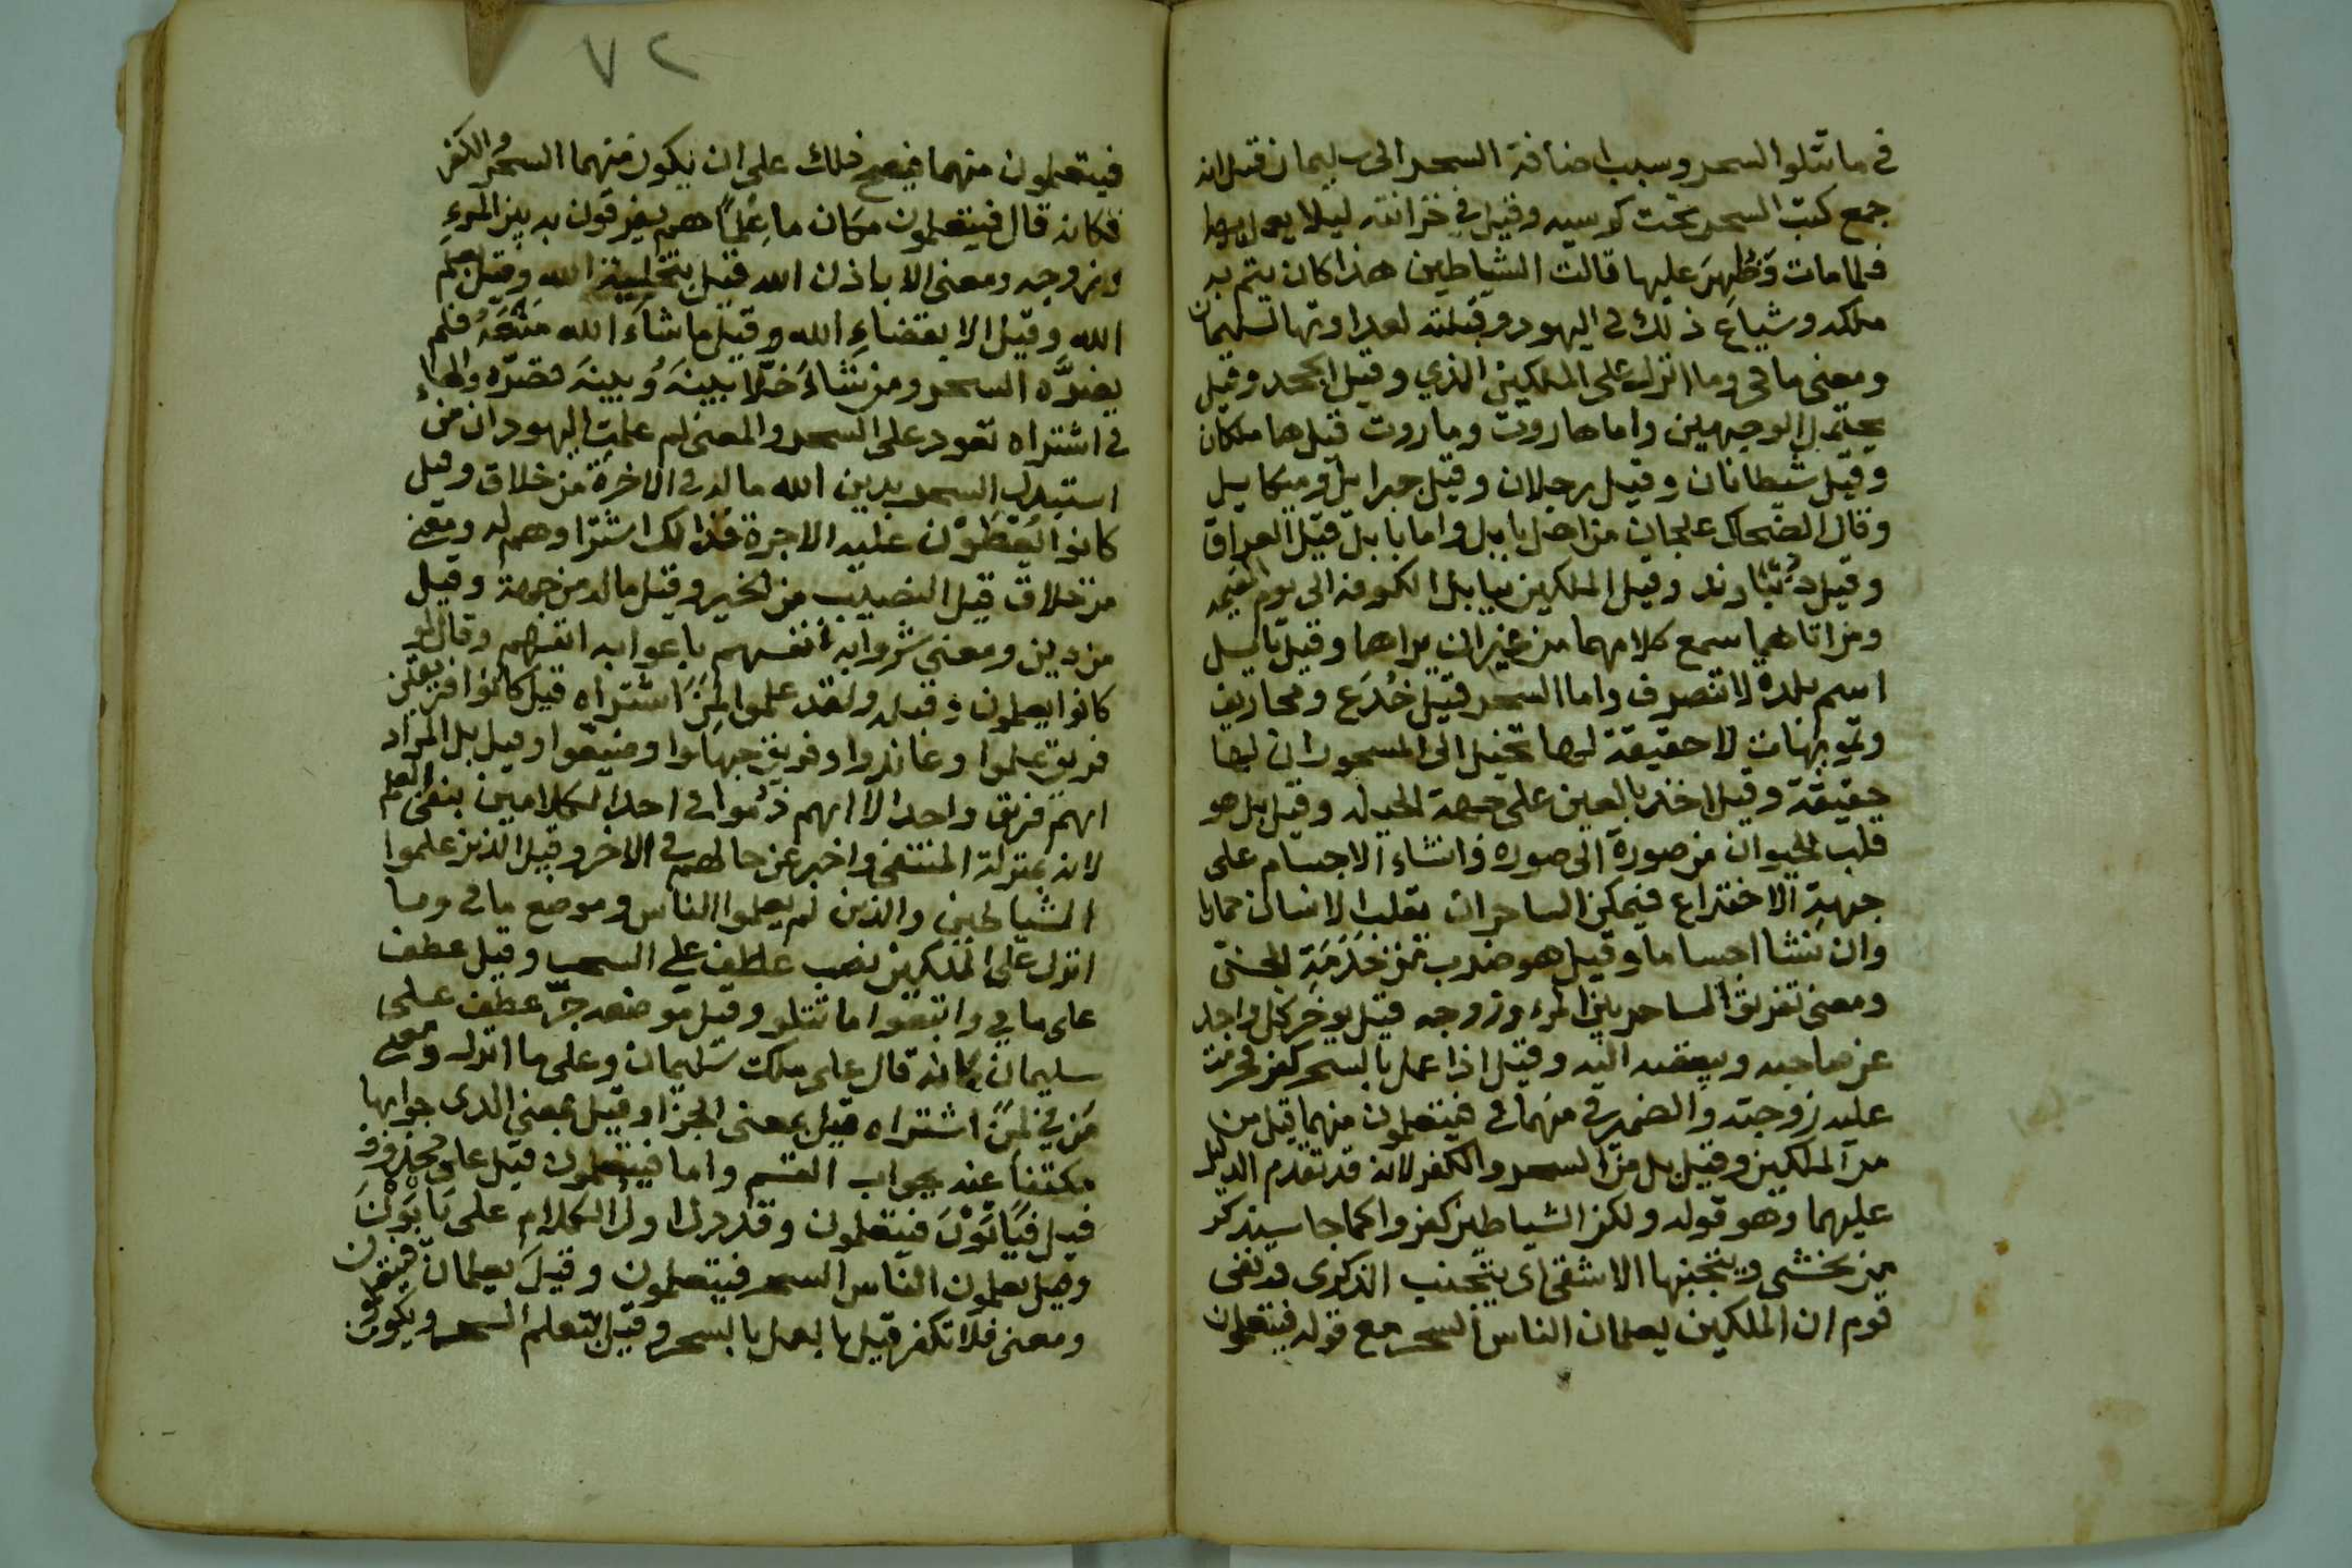 في ما تتلوا السحر وسبب اضافة السحر الى سليمان قيل انه
جمع كتب السحر تحت كرسيه وقيل في خزانته ليلا يعمل بها
فلما مات وظُهِرَ عليها قالت الشياطين هذا كان يتم به
ملكه وشياع ذلك في اليهود وقبلته لعداوتها لسليمان
ومعنى ما في وما انزل على الملكين الذي وقيل الجحد وقيل
يحتمل الوجهين واما هاروت وماروت قيل هما ملكان
وقيل شيطانان وقيل رجلان وقيل جبرايل وميكاييل
وقال الضحاك علجان من اهل بابل واما بابل قيل العراق
وقيل دُنبَاوند وقيل الملكين ببابل الكوفه الى يوم القيمه
ومن اتاهما سمع كلامهما من غير ان يراها وقيل بابل
اسم بلدة لا تنصرف واما السحر قيل خُدَع ومخاريق
وتمويهات لا حقيقة لها تخيل الى المسحور ان لها
حقيقة وقيل اخذ بالعين على جهة الحيله وقيل بل هو
قلب الحيوان من صورة الى صوره وانشاء الاجسام على
جهة الاختراع فيمكن الساحر ان يقلب الانسان حمارا
وان ينشا اجساما وقيل هو ضرب من خَدَمَةِ الجن
ومعنى تفريق الساحر بين المرء وزوجه قيل يوخر كل واحد
عن صاحبه ويبغضه اليه وقيل اذا عمل بالسحر كفر فحرمت
عليه زوجته والضمير في منهما في فيتعلمون منهما قيل من
من الملكين وقيل بل من السحر والكفر لانه قد تقدم الدليل
عليهما وهو قوله ولكن الشياطين كفروا كما جا سيذكر
من يخشى ويتجنبها الاشقى اى يتجنب الذكرى قد نفى
قوم ان الملكين يعلمان الناس السحر مع قوله فيتعلمون
٧٢
فيتعلمون منهما فيصح ذلك على ان يكون منهما السحر والكفر
فكانه قال فيتعلمون مكان ما عِلماً هم يفرقون به بين المرءِ
وزوجه ومعنى الا باذن الله قيل بتخلية الله وقيل بعلم
الله وقيل الا بقضاءِ الله وقيل ما شاءَ الله مَنعَهُ فلم
يضرَّه السحر ومن شاءَ خلّا بينهَ وُ بينهَ فضرّه والهاء
في اشتراه تعود على السحر والمعنى لم علمت اليهود ان من
استبدل السحر بدين الله ما له في الاخرة من خلاق وقيل
كانوا يُعْطَوْن عليه الاجرة فذالك اشتراوهم له ومعنى
من خلاق قيل النصيب من الخير وقيل ما له من جهة وقيل
من دين ومعنى شروا به انفسهم باعوا به انفسهم وقال لو
كانوا يعلمون وقوله ولقد علموا لمن اشتراه قيل كانوا فريقين
فريق علموا وعاندوا وفريق جهلوا وضيعوا وقيل بل المراد
انهم فريق واحد الا انهم ذُموا في احد الكلامين بنفى العلم
لانه بمنزلة المنتفى واخبر عن حالهم في الاخر وقيل الذين علموا
الشياطين والذين لم يعلموا الناس وموضع ما في وما
انزل على الملكين نصب عطف على السحر وقيل عطف
على ما في واتبعوا ما تتلو وقيل موضعه جرّ عطف على
سليمان كانه قال على ملك سليمان وعلى ما انزل ومعنى
مَن في لمَن اشتراه قيل بمعنى الجزا وقيل بمعنى الذى جوابها
مكتفا عنه بجواب القسم واما فيتعلمون قيل على محذوف
قيل فَيَاتَوْنَ فيتعلمون وقد دل اول الكلام على يَابَوْنَ
وقيل يعلمون الناس السحر فيتعلمون وقيلَ يعلمان فيتعلمون
ومعنى فلا تكفر قيل بالعمل بالسحر وقيل بتعلم السحر ويكون